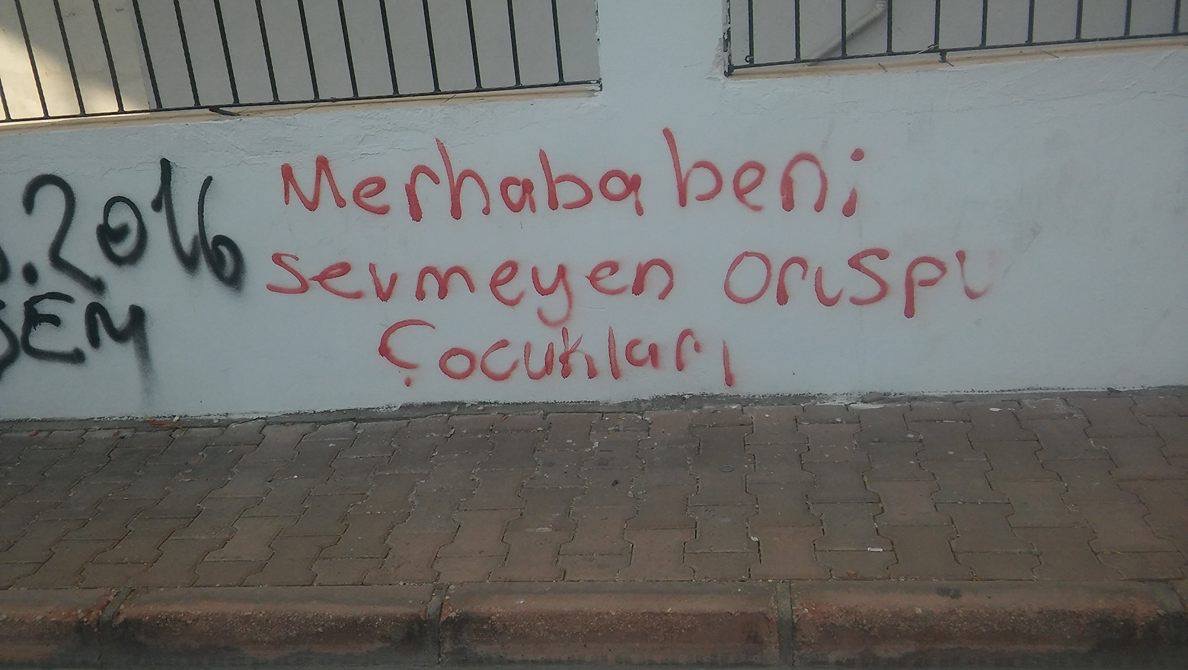 .2016
Merhaba beni
sevmeyen oruspu
Çocukları